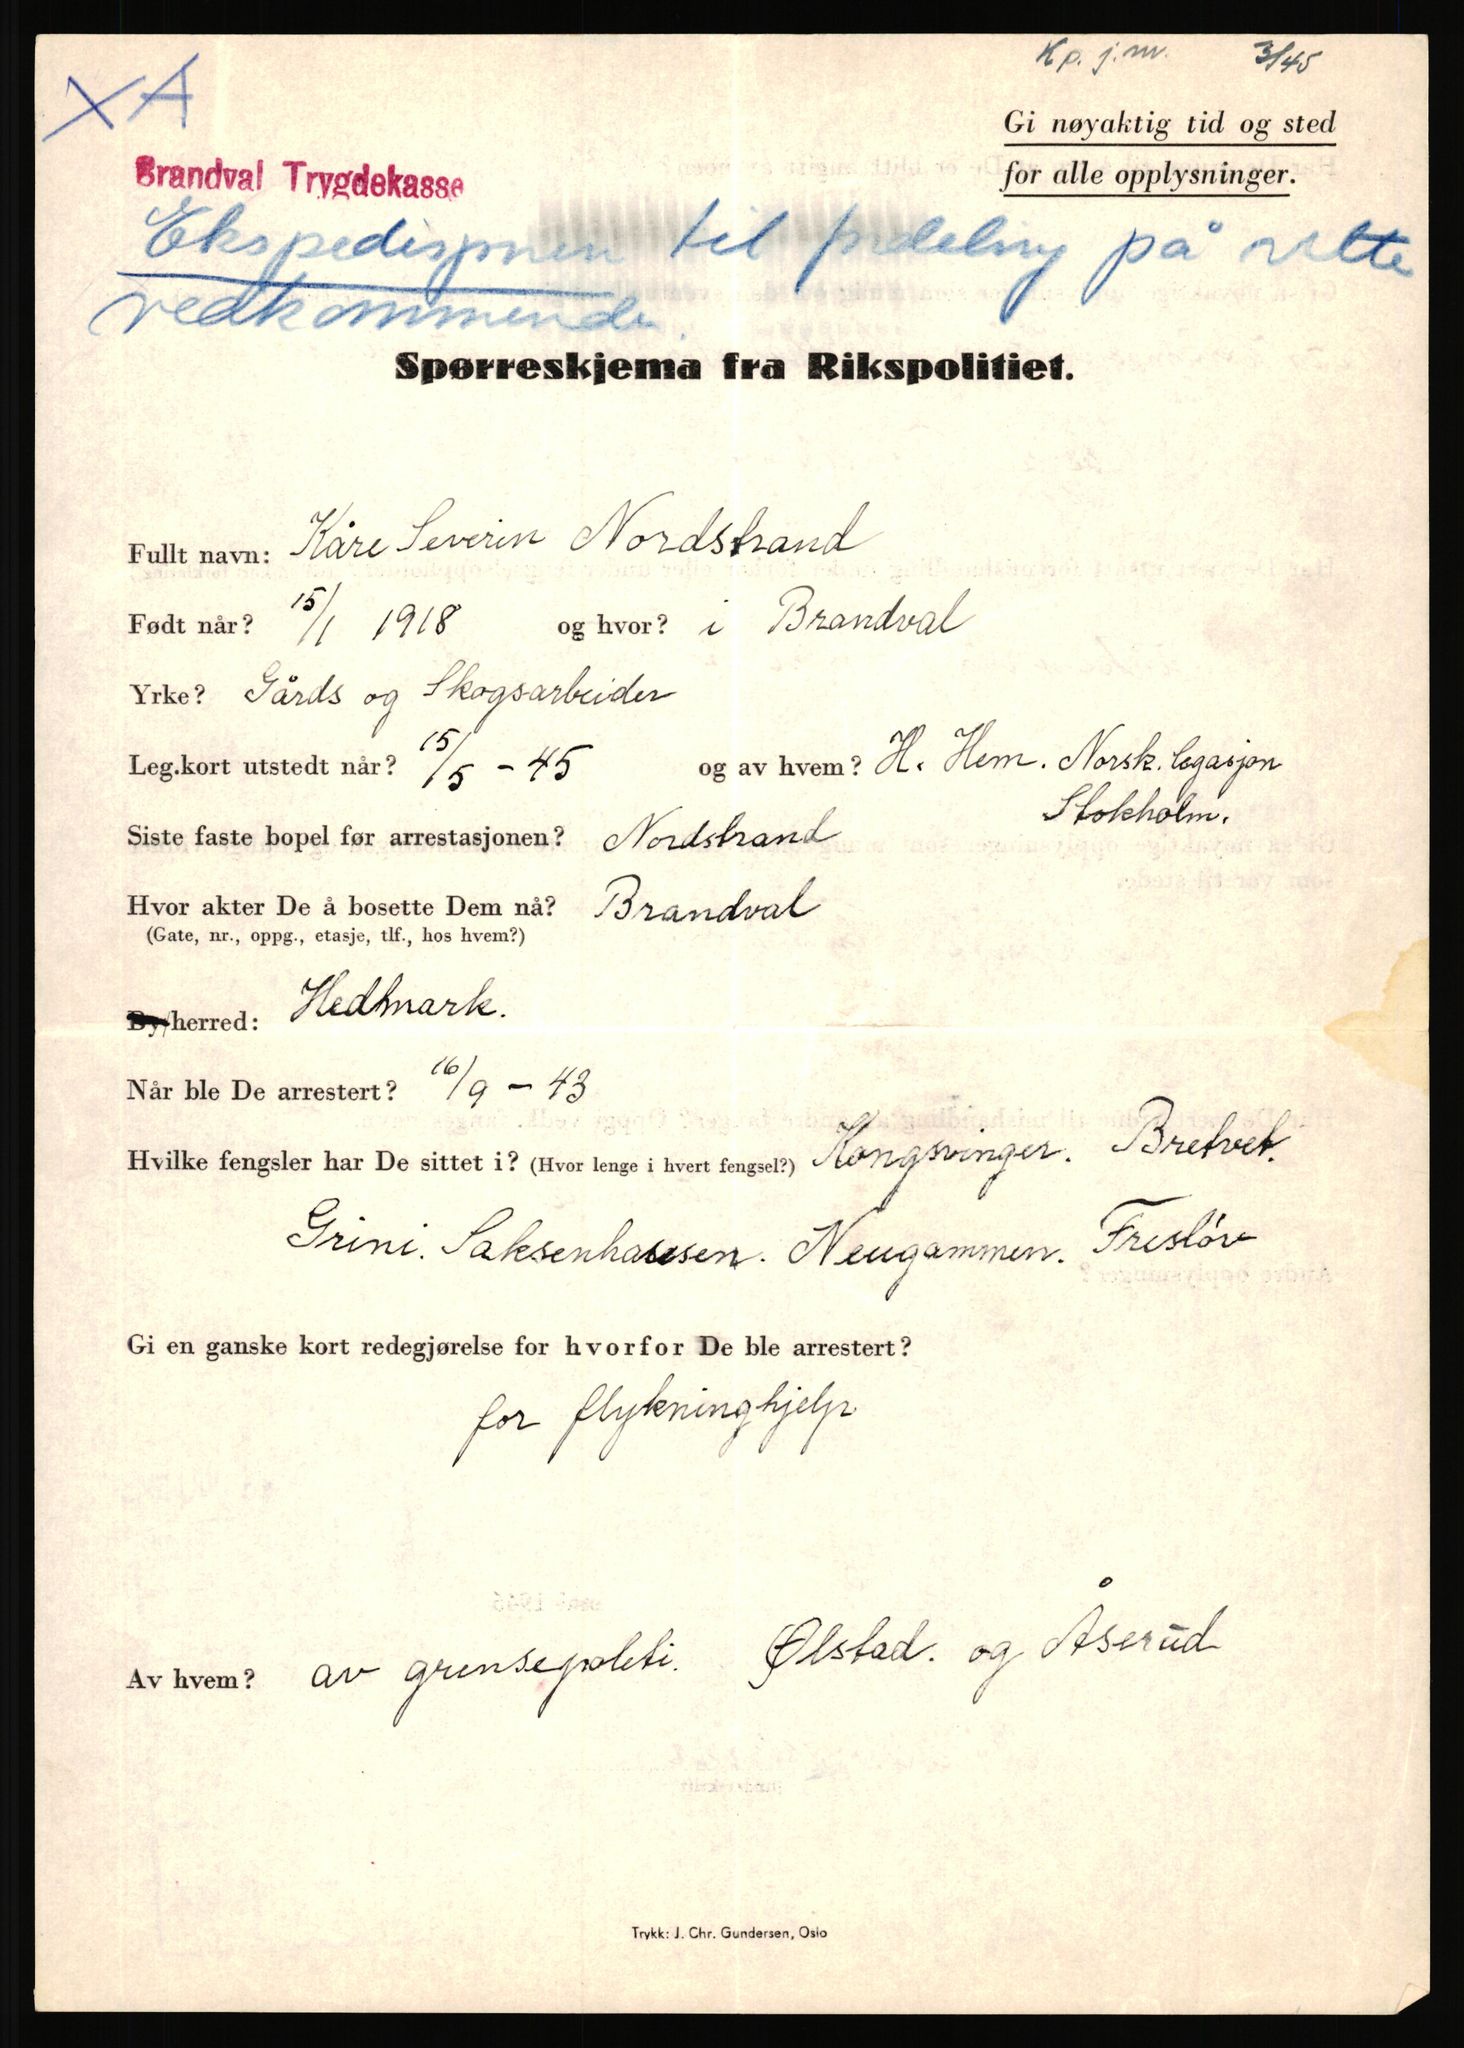 Kp. j.nr. 3/45
XA
Gi nøyaktig tid og sted
for alle opplysninger.
Brandval Trygdekasse
til på rette
vedkommende.
Spørreskjema fra Rikspolitiet.
Fullt navn: Kåre Severin Nordstrand
Født når? 15/1 1918 og hvor? i Brandval
Yrke? Gårds og Skogsarbeider
Leg.kort utstedt når? 15/5 - 45 og av hvem? H. Hem. Norsk. legasjon
Stokholm.
Siste faste bopel før arrestasjonen? Nordstrand
Hvor akter De å bosette Dem nå? Brandval
(Gate, nr., oppg., etasje, tlf., hos hvem?)
By/herred: Hedmark.
Når ble De arrestert? 16/9 - 43
Hvilke fengsler har De sittet i? (Hvor lenge i hvert fengsel?) Kongsvinger. Bretvet.
Grini. Saksenhausen. Neugammen. Freslöv
Gi en ganske kort redegjørelse for hvorfor De ble arrestert?
for flykninghjelp
Av hvem? av grensepoleti. Ølstad. og Åserud
Trykk: J. Chr. Gundersen, Oslo